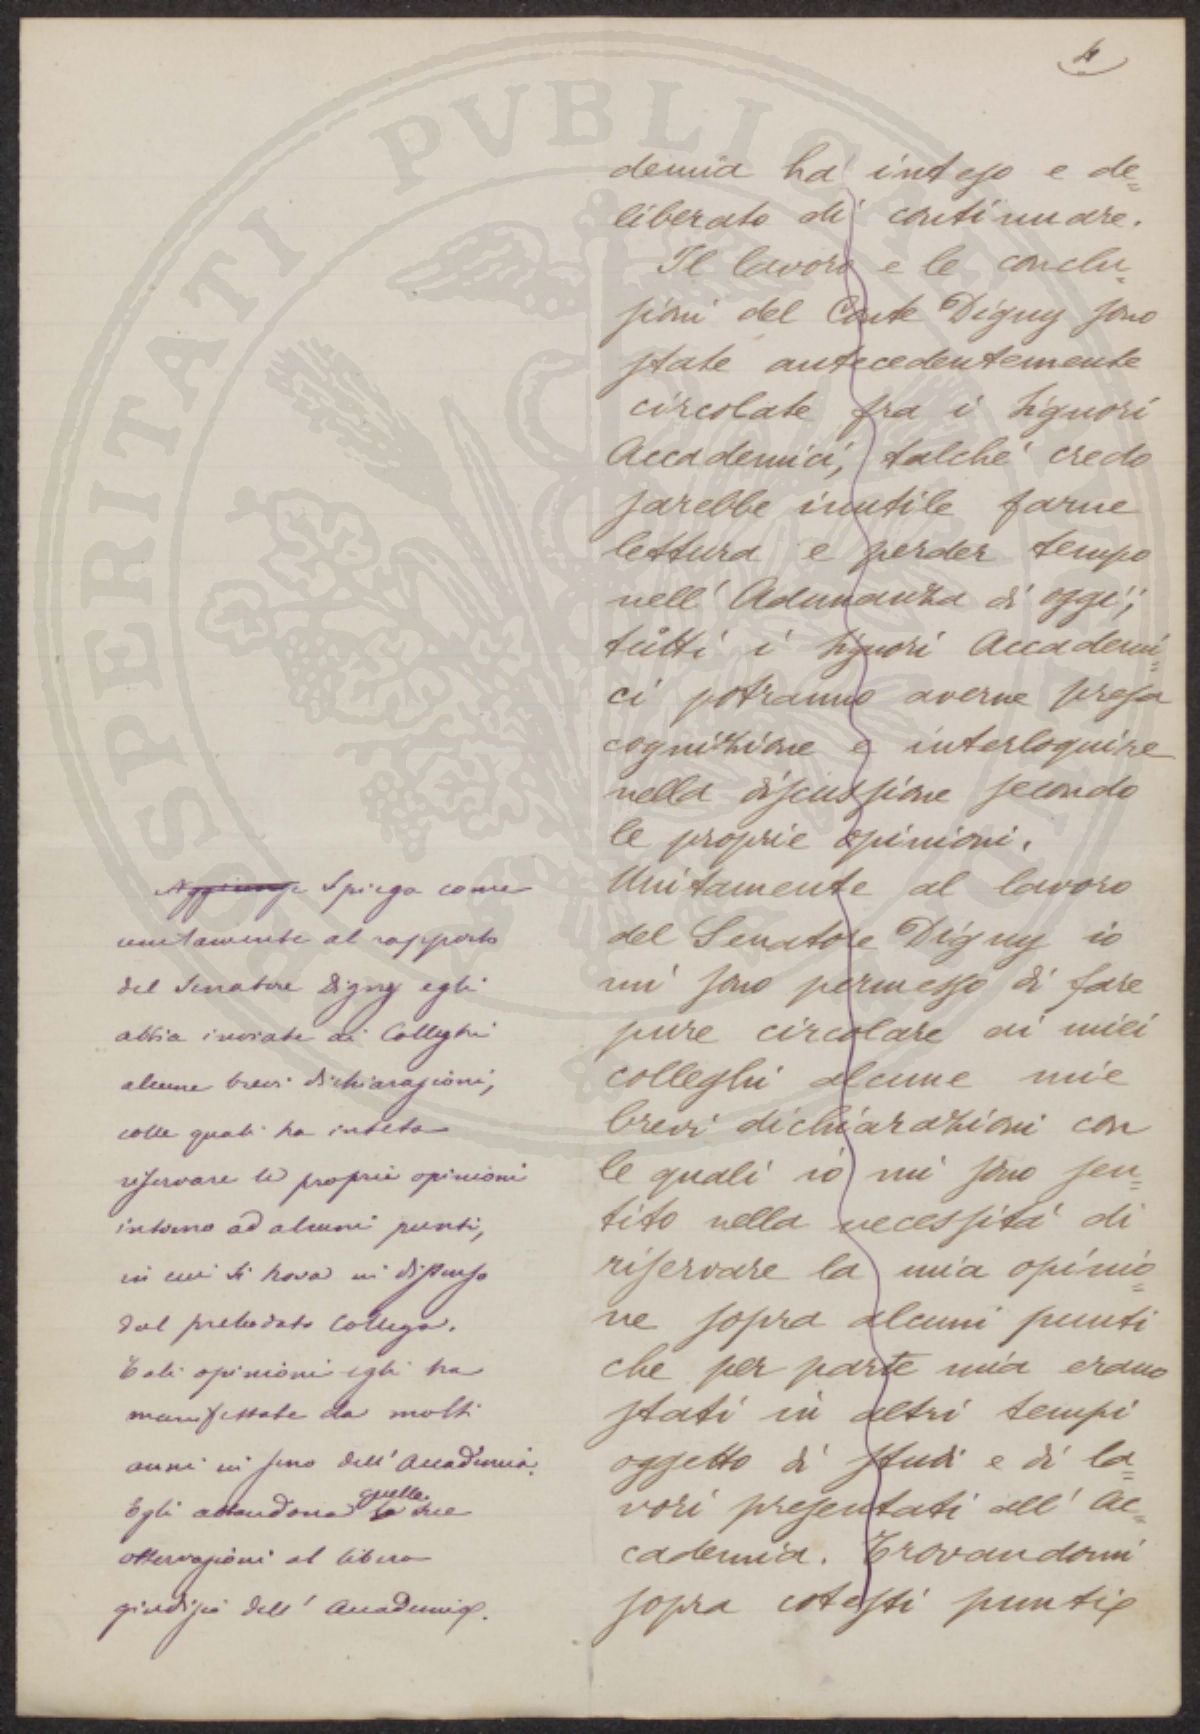 4
demia ha inteso e de=
liberato di continuare.
Il lavoro e le conclu=
sioni del Conte Digny sono
state antecedentemente
circolate fra i Signori
Accademici, talchè credo
sarebbe inutile farne
lettura e perder tempo
nell' Adunanza di oggi;
tutti i Signori Accademi=
ci potranno averne presa
cognizione e interloquire
nella discussione secondo
le proprie opinioni.
Unitamente al lavoro
del Senatore Digny io
mi sono permesso di fare
pure circolare ai miei
colleghi alcune mie
brevi dichiarazioni con
le quali io mi sono sen=
tito nella necessità di
riservare la mia opinio=
ne sopra alcuni punti
che per parte mia erano
stati in altri tempi
oggetto di studi e di la=
vori presentati all' Ac=
cademia. Trovandomi
sopra cotesti punti
Aggiunge Spiega come
unitamente al rapporto
del Senatore Digny egli
abbia inviate ai Colleghi
alcune brevi dichiarazioni,
colle quali ha inteso
riservare le proprie opinioni
intorno ad alcuni punti,
in cui si trova in dissenso
dal prelodato Collega.
Tali opinioni egli ha
manifestate da molti
anni in seno dell' Accademia.
Egli abbandona quelle sue
osservazioni al libero
giudizio dell' Accademia.
PROSPERITATI PVBLICAE